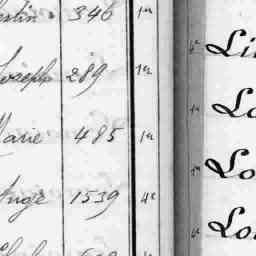 346 1re
Joseph 289 1re
Marie 485 1re
Ange 1539 4e
4e Li
1re Lo
1re Lo
4e Lo